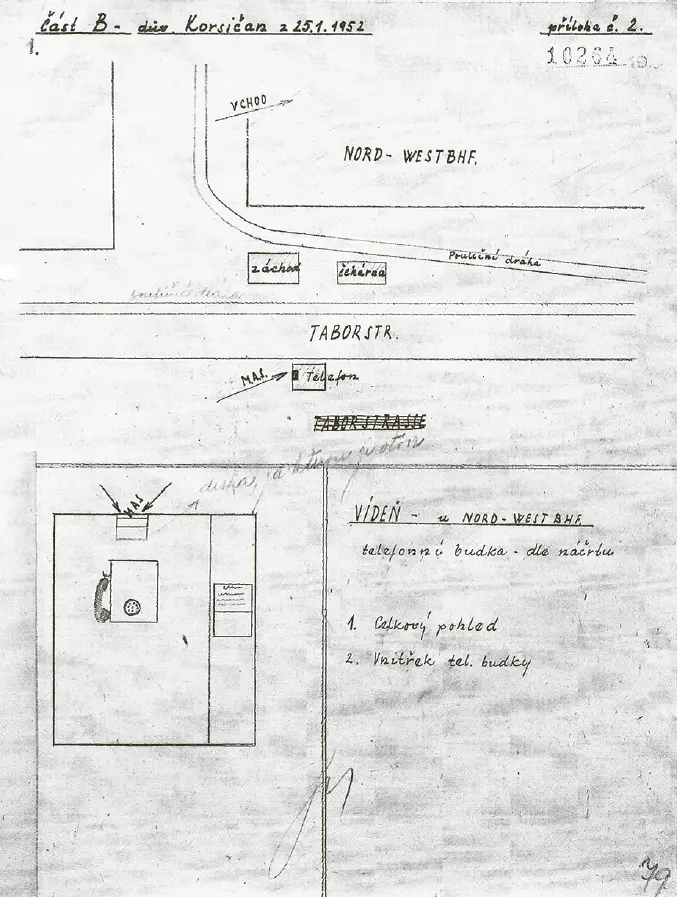 část B - dův. Korsičan z 25.1.1952
příloha č. 2.
1.
10264
VCHOD
NORD - WESTBHF.
Pouliční dráha
záchod
čekárna
TABORSTR.
M.A.S.
Telefon
TABORSTRASSE
MAS
VÍDEŇ - u NORD-WESTBHF.
telefonní budka - dle náčrtu
1. Celkový pohled
2. Vnitřek tel. budky
79